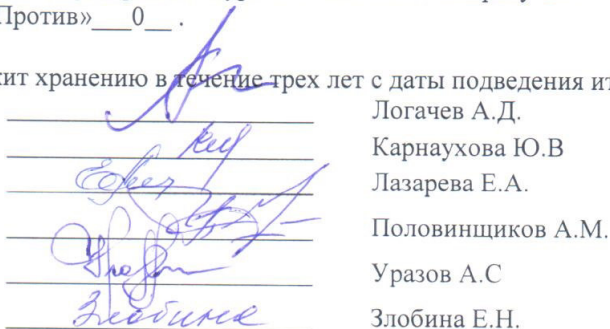 Против»___0__ .
жит хранению в течение трех лет с даты подведения ит
Логачев А.Д.
Карнаухова Ю.В
Лазарева Е.А.
Половинщиков А.М.
Уразов А.С
Злобина Злобина Е.Н.